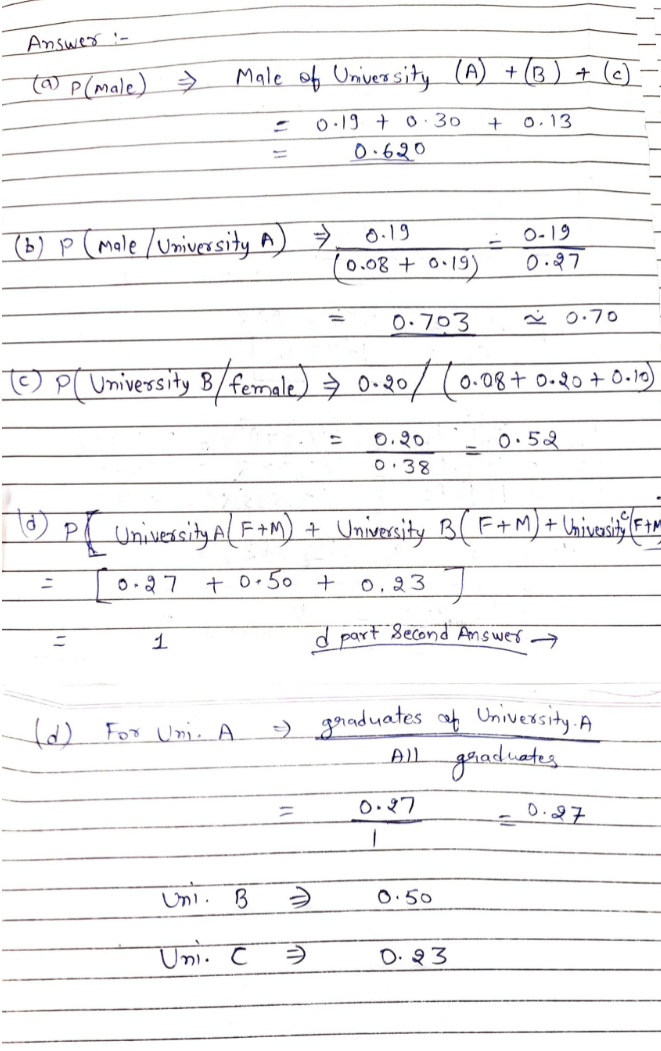 Answer :-
(a) P(Male) ⇒ Male of University (A) + (B) + (C)
= 0.19 + 0.30 + 0.13
= 0.620
(b) P (Male / University A) ⇒ 0.19 / (0.08 + 0.19) = 0.19 / 0.27
= 0.703 ≃ 0.70
(c) P( University B / female) ⇒ 0.20 / (0.08 + 0.20 + 0.10)
= 0.20 / 0.38 = 0.52
(d) P[ University A (F+M) + University B (F+M) + University C (F+M
= [ 0.27 + 0.50 + 0.23 ]
= 1 d part Second Answer →
(d) For Uni. A ⇒ graduates of University.A / All graduates
= 0.27 / 1 = 0.27
Uni. B ⇒ 0.50
Uni. C ⇒ 0.23